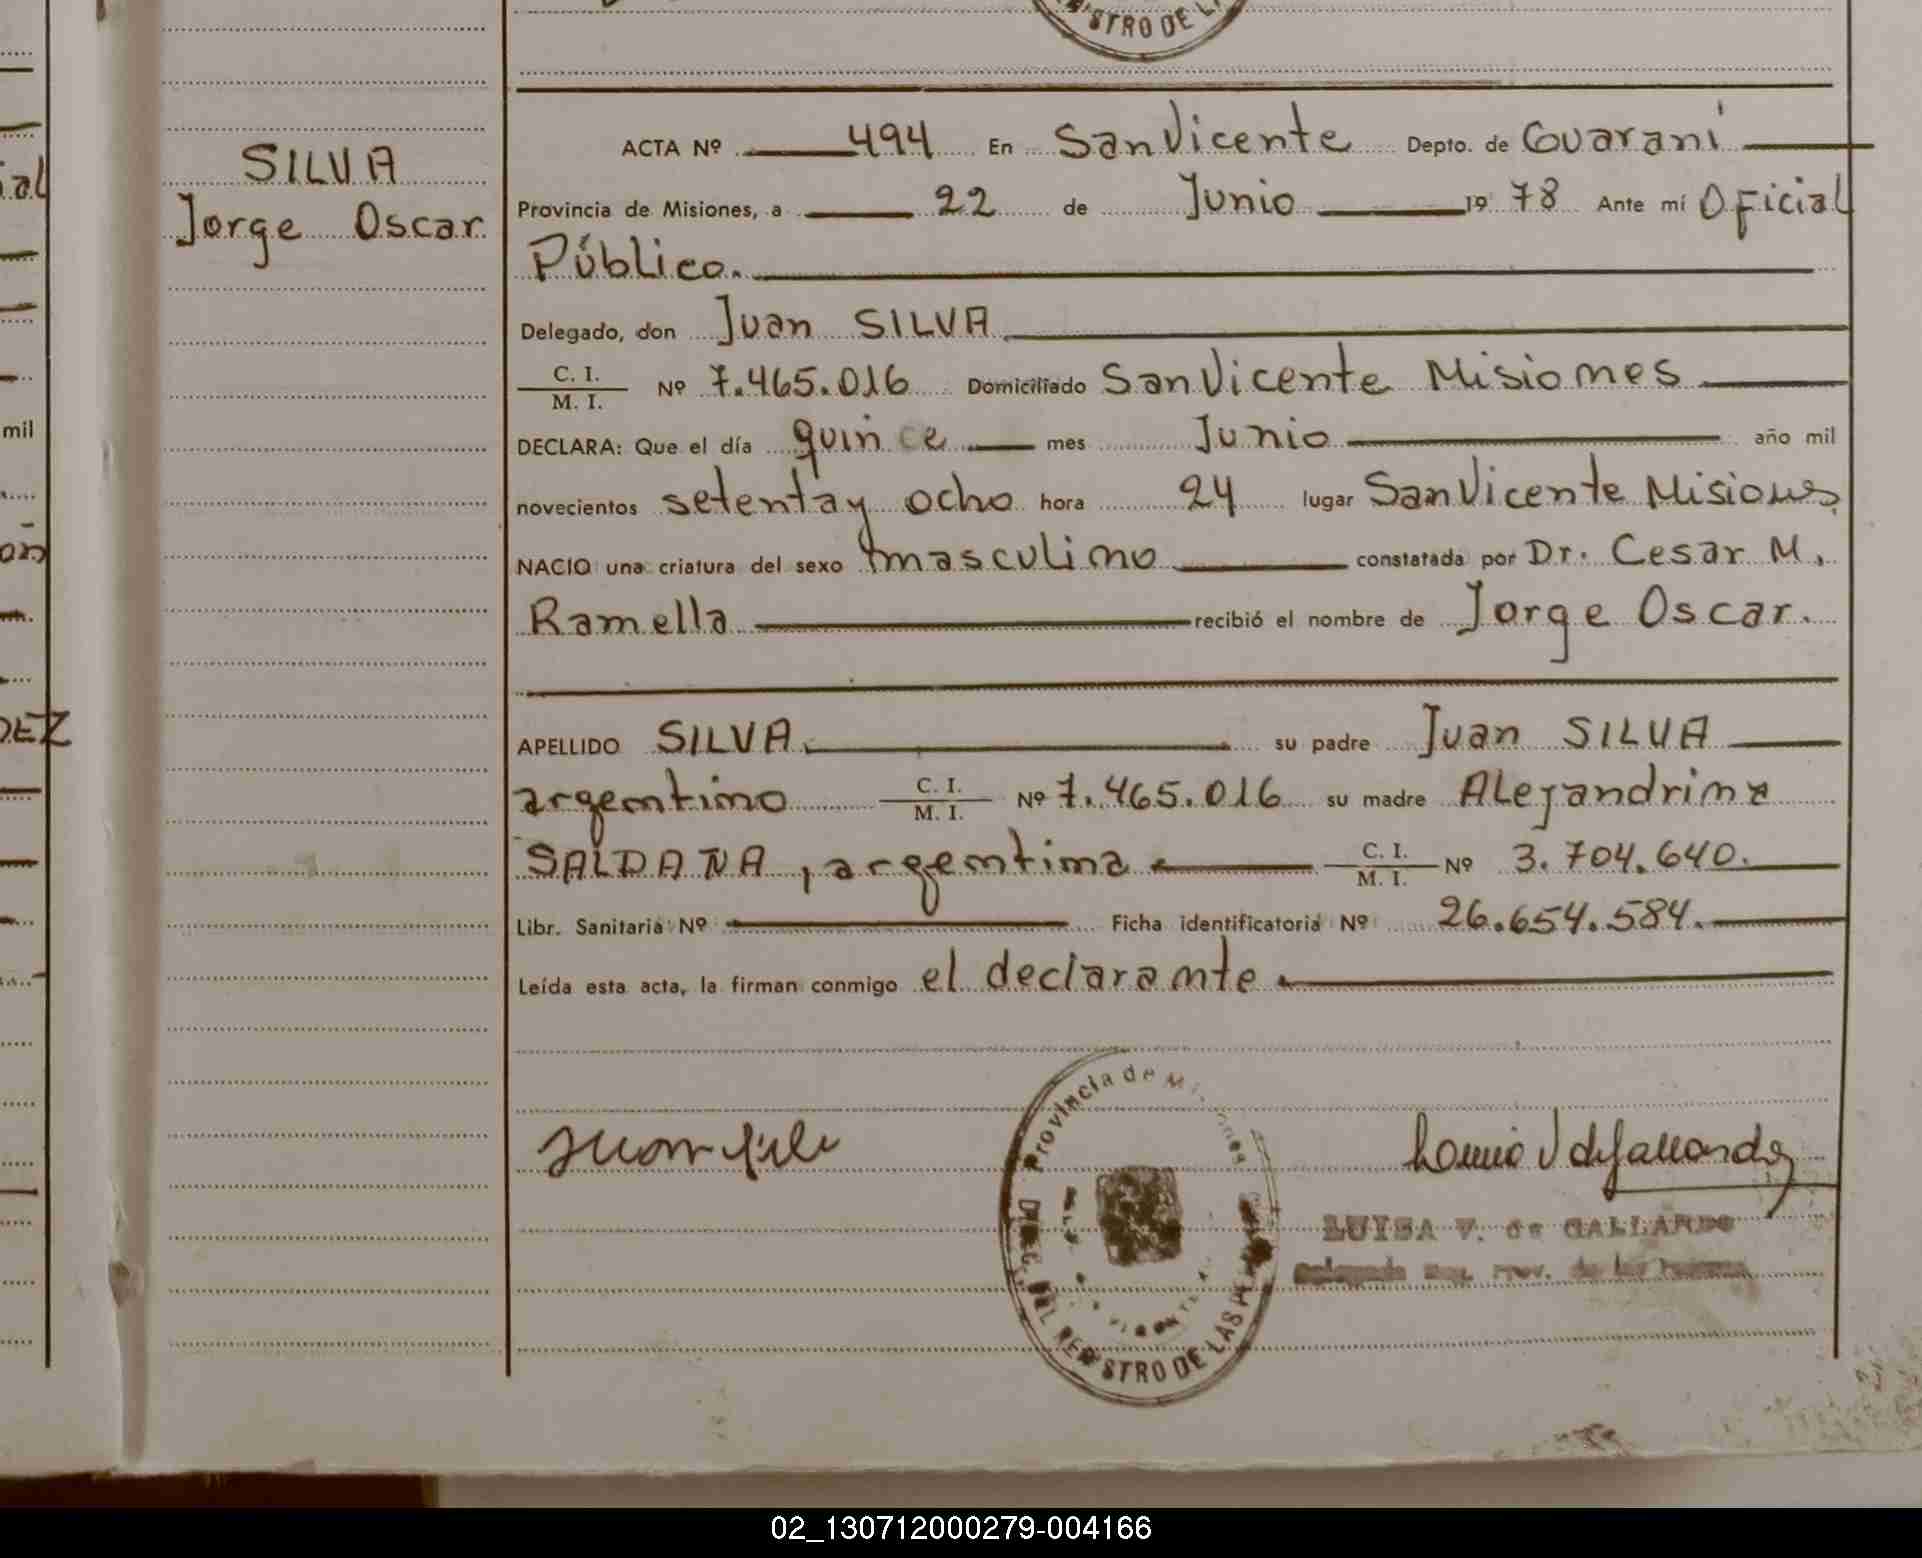 STRO DE L
SILVA
Jorge Oscar
ACTA Nº 494 En San Vicente Depto. de Guaraní
Provincia de Misiones, a 22 de Junio 1978 Ante mí Oficial
Público.
Delegado, don Juan SILVA
C. I.
M. I.
Nº 7.465.016 Domiciliado San Vicente Misiones
DECLARA: Que el día quince mes Junio año mil
novecientos setenta y ocho hora 24 lugar San Vicente Misiones
NACIO una criatura del sexo masculino constatada por Dr. Cesar M.
Ramella recibió el nombre de Jorge Oscar.
APELLIDO SILVA su padre Juan SILVA
argentino C. I.
M. I.
Nº 7.465.016 su madre Alejandrina
SALDAÑA, argentina C. I.
M. I.
Nº 3.704.640.
Libr. Sanitaria Nº Ficha identificatoria Nº 26.654.584.
Leída esta acta, la firman conmigo el declarante
Juan Silva
Provincia de Misiones
DIREC. DEL REGISTRO DE LAS PER
LUISA V. de GALLARDO
ial
mil
on
DEZ
02_130712000279-004166